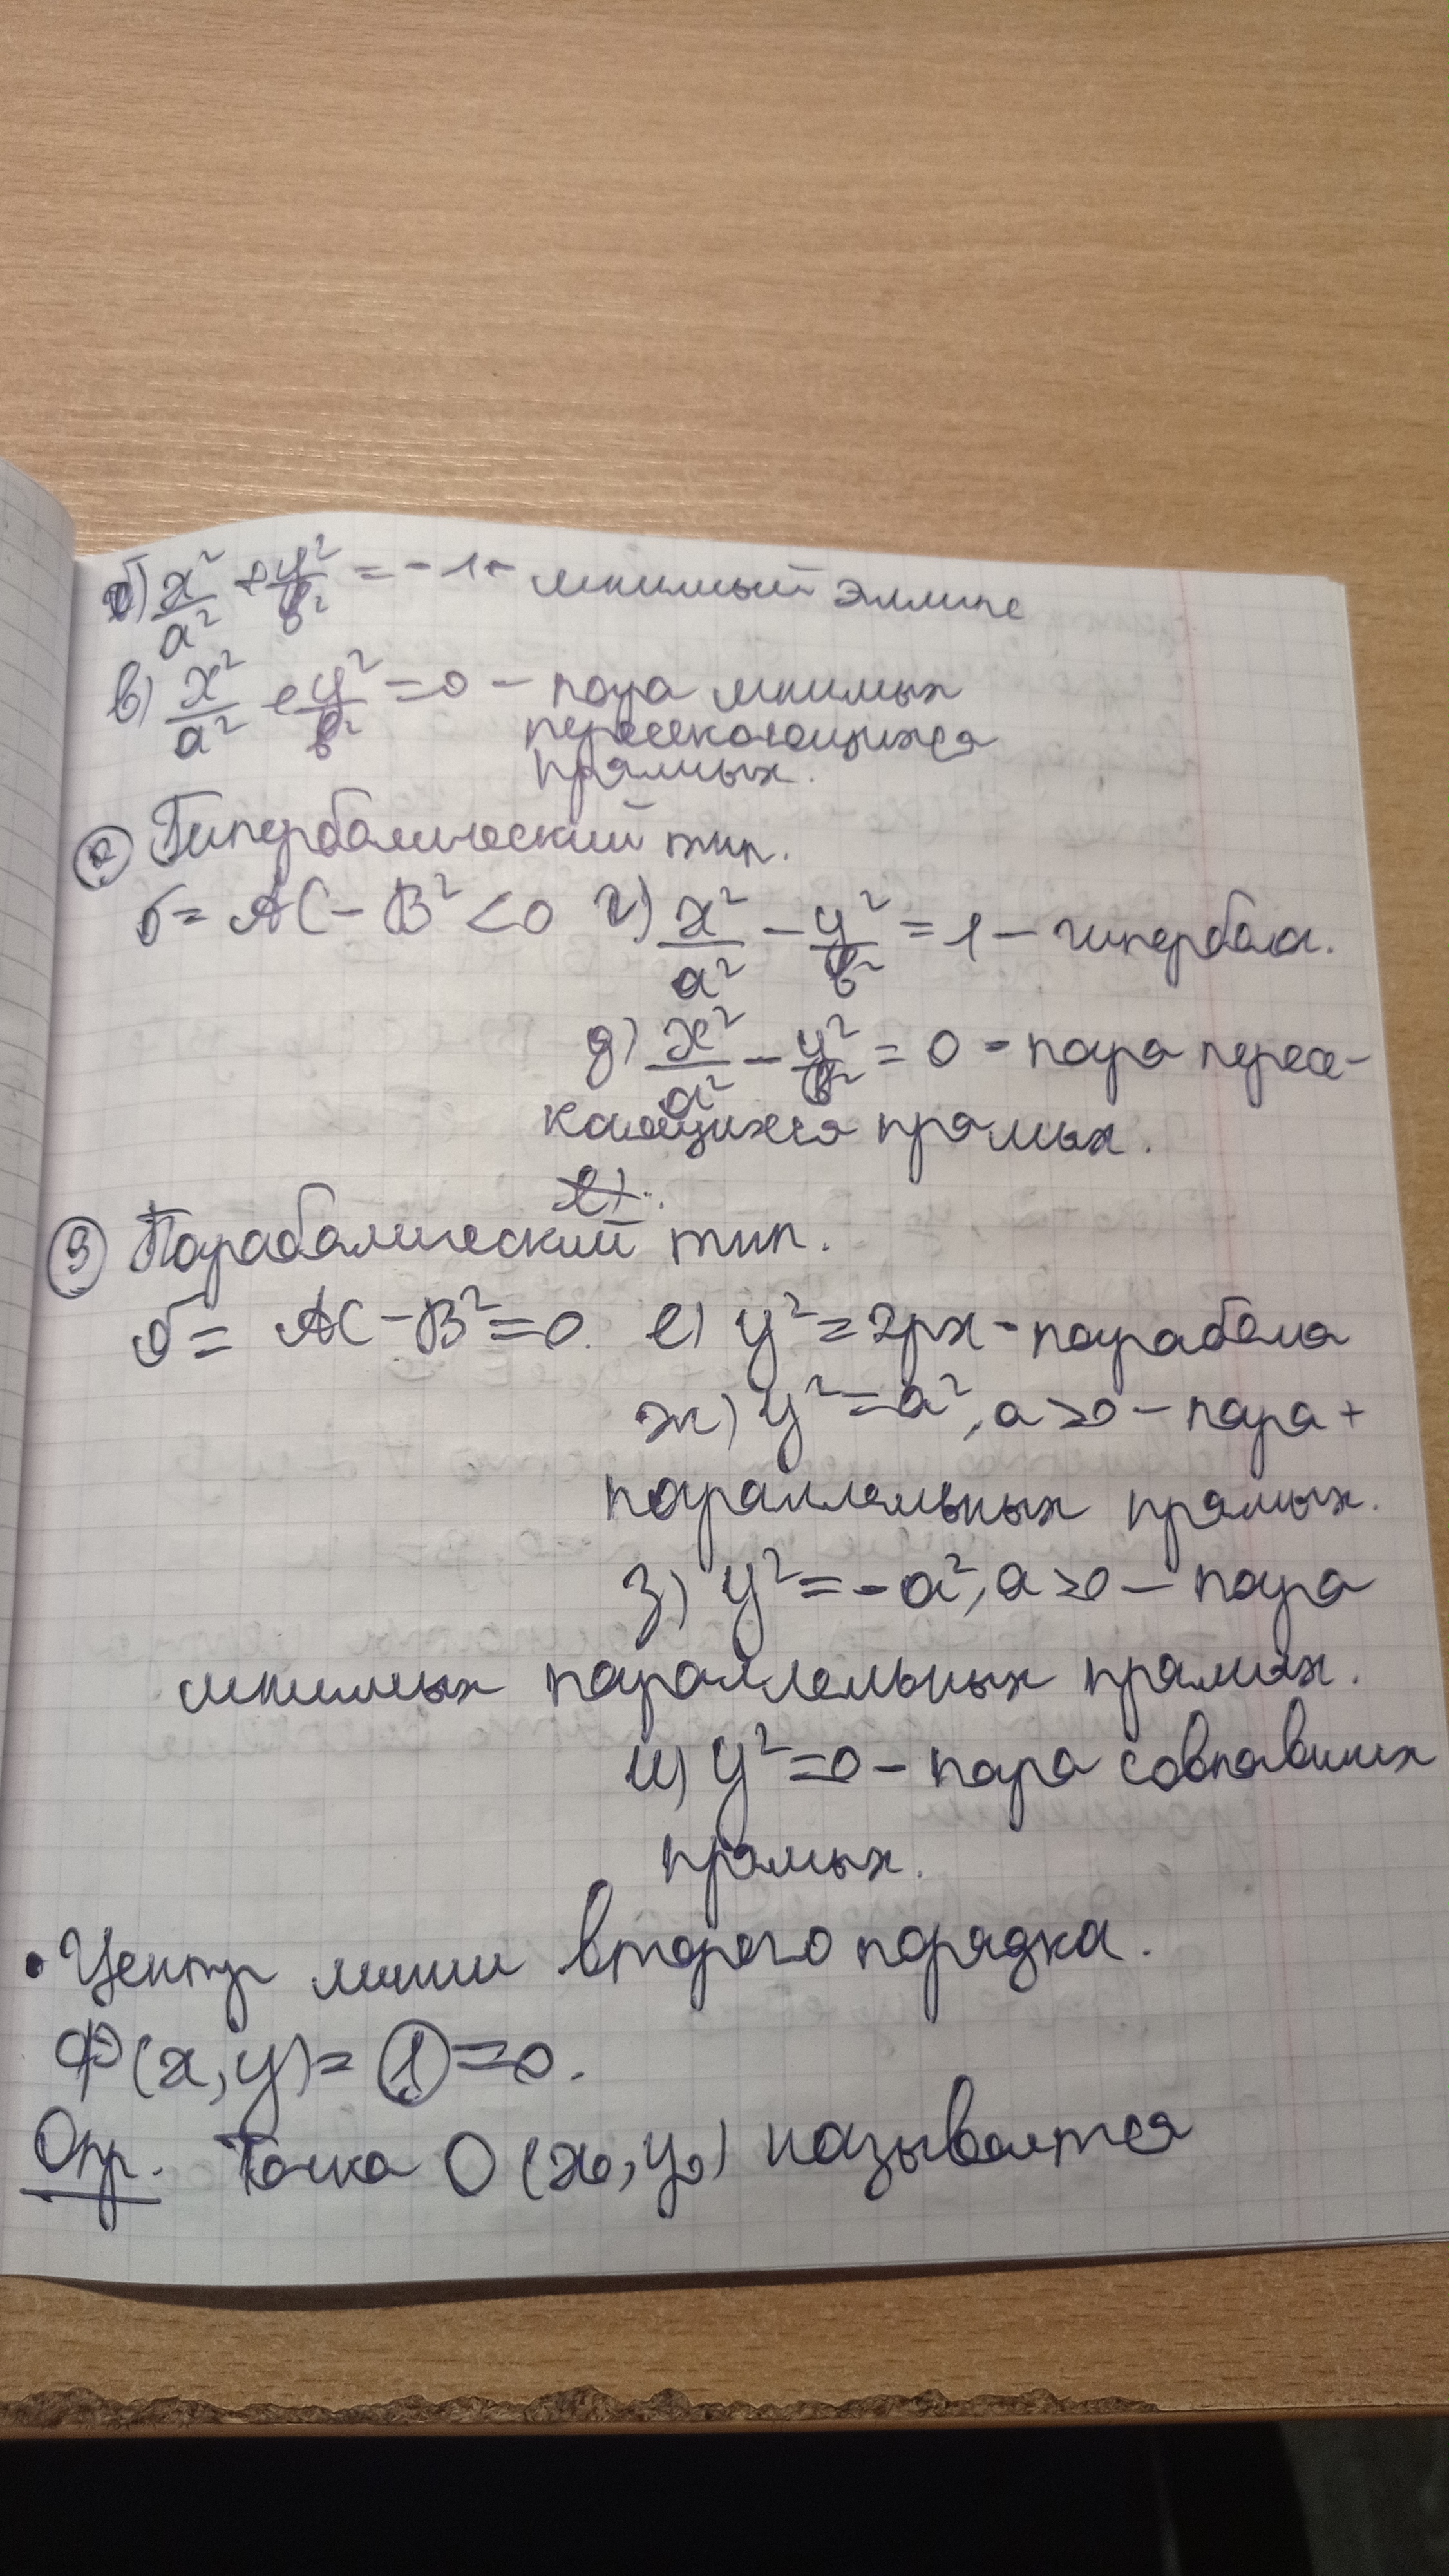 б) x²/a² + y²/b² = -1 - мнимый эллипс
в) x²/a² + y²/b² = 0 - пара мнимых
пересекающихся
прямых.
② Гиперболический тип.
δ = AC - B² < 0 г) x²/a² - y²/b² = 1 - гипербола.
д) x²/a² - y²/b² = 0 - пара пересе-
кающихся прямых.
③ Параболический тип.
δ = AC - B² = 0. е) y² = 2px - парабола
ж) y² = a², a ≥ 0 - пара +
параллельных прямых.
з) y² = -a², a ≥ 0 - пара
мнимых параллельных прямых.
и) y² = 0 - пара совпавших
прямых.
• Центр линии второго порядка.
Ф(x, y) = ① = 0.
Опр. Точка O(x₀, y₀) называется